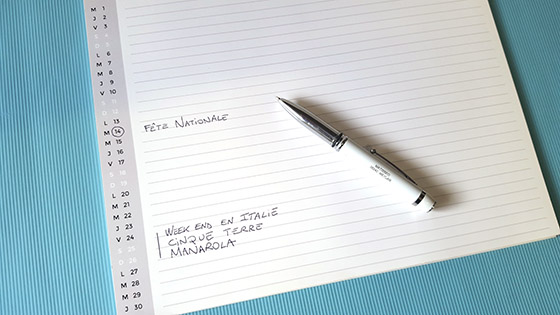 M 1
J 2
V 3
S 4
D 5
L 6
M 7
M 8
J 9
V 10
S 11
D 12
L 13
M 14
M 15
J 16
V 17
S 18
D 19
L 20
M 21
M 22
J 23
V 24
S 25
D 26
L 27
M 28
M 29
J 30
FÊTE NATIONALE
WEEK END EN ITALIE
CINQUE TERRE
MANAROLA